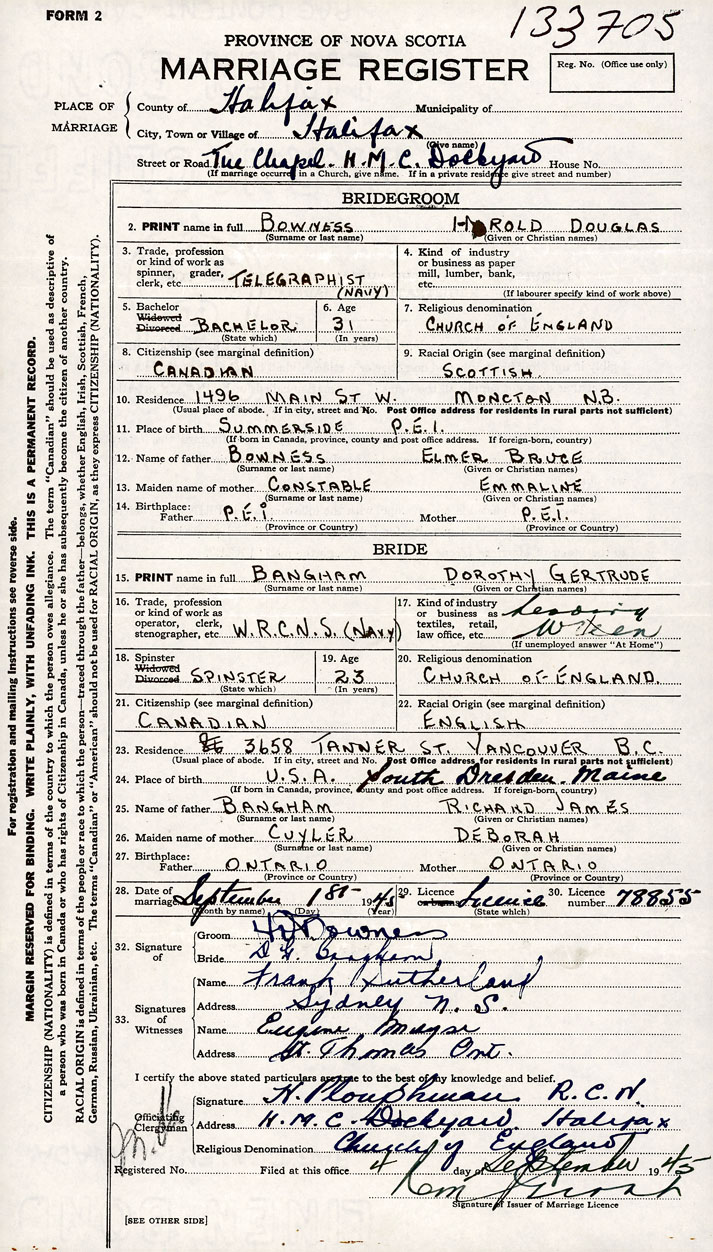 FORM 2
133705
PROVINCE OF NOVA SCOTIA
MARRIAGE REGISTER
Reg. No. (Office use only)
PLACE OF MARRIAGE
County of Halifax Municipality of
City, Town or Village of Halifax
(Give name)
Street or Road The Chapel. H.M.C. Dockyard House No.
(If marriage occurred in a Church, give name. If in a private residence give street and number)
BRIDEGROOM
2. PRINT name in full BOWNESS HAROLD DOUGLAS
(Surname or last name) (Given or Christian names)
3. Trade, profession or kind of work as spinner, grader, clerk, etc. TELEGRAPHIST (NAVY)
4. Kind of industry or business as paper mill, lumber, bank, etc.
(If labourer specify kind of work above)
5. Bachelor Widowed Divorced BACHELOR
(State which)
6. Age 31
(In years)
7. Religious denomination
CHURCH OF ENGLAND
8. Citizenship (see marginal definition)
CANADIAN
9. Racial Origin (see marginal definition)
SCOTTISH
10. Residence 1496 MAIN ST W. MONCTON N.B.
(Usual place of abode. If in city, street and No. Post Office address for residents in rural parts not sufficient)
11. Place of birth SUMMERSIDE P.E.I.
(If born in Canada, province, county and post office address. If foreign-born, country)
12. Name of father BOWNESS ELMER BRUCE
(Surname or last name) (Given or Christian names)
13. Maiden name of mother CONSTABLE EMMALINE
(Surname or last name) (Given or Christian names)
14. Birthplace:
Father P.E.I. Mother P.E.I.
(Province or Country) (Province or Country)
BRIDE
15. PRINT name in full BANGHAM DOROTHY GERTRUDE
(Surname or last name) (Given or Christian names)
16. Trade, profession or kind of work as operator, clerk, stenographer, etc. W.R.C.N.S. (NAVY)
17. Kind of industry or business as textiles, retail, law office, etc. Leading Wren
(If unemployed answer "At Home")
18. Spinster Widowed Divorced SPINSTER
(State which)
19. Age 23
(In years)
20. Religious denomination
CHURCH OF ENGLAND.
21. Citizenship (see marginal definition)
CANADIAN
22. Racial Origin (see marginal definition)
ENGLISH
23. Residence 3658 TANNER ST. VANCOUVER B.C.
(Usual place of abode. If in city, street and No. Post Office address for residents in rural parts not sufficient)
24. Place of birth U.S.A. South Dresden. Maine
(If born in Canada, province, county and post office address. If foreign-born, country)
25. Name of father BANGHAM RICHARD JAMES
(Surname or last name) (Given or Christian names)
26. Maiden name of mother CUYLER DEBORAH
(Surname or last name) (Given or Christian names)
27. Birthplace:
Father ONTARIO Mother ONTARIO
(Province or Country) (Province or Country)
28. Date of marriage September 1st 1945
(Month by name) (Day) (Year)
29. Licence or banns Licence
(State which)
30. Licence number 78855
32. Signature of
Groom H D Bowness
Bride D.G. Bangham
33. Signatures of Witnesses
Name Frank Sutherland
Address Sydney N.S.
Name Eugene
Address St. Thomas Ont.
I certify the above stated particulars are true to the best of my knowledge and belief.
Officiating Clergyman
Signature H. Ploughman R.C.N.
Address H.M.C. Dockyard. Halifax
Religious Denomination Church of England
Registered No. Filed at this office 4 day of September 1945
Signature of Issuer of Marriage Licence
[SEE OTHER SIDE]
For registration and mailing instructions see reverse side.
MARGIN RESERVED FOR BINDING. WRITE PLAINLY, WITH UNFADING INK. THIS IS A PERMANENT RECORD.
CITIZENSHIP (NATIONALITY) is defined in terms of the country to which the person owes allegiance. The term "Canadian" should be used as descriptive of
a person who was born in Canada or who has rights of Citizenship in Canada, unless he or she has subsequently become the citizen of another country.
RACIAL ORIGIN is defined in terms of the people or race to which the person—traced through the father—belongs, whether English, Irish, Scottish, French,
German, Russian, Ukrainian, etc. The terms "Canadian" or "American" should not be used for RACIAL ORIGIN, as they express CITIZENSHIP (NATIONALITY).